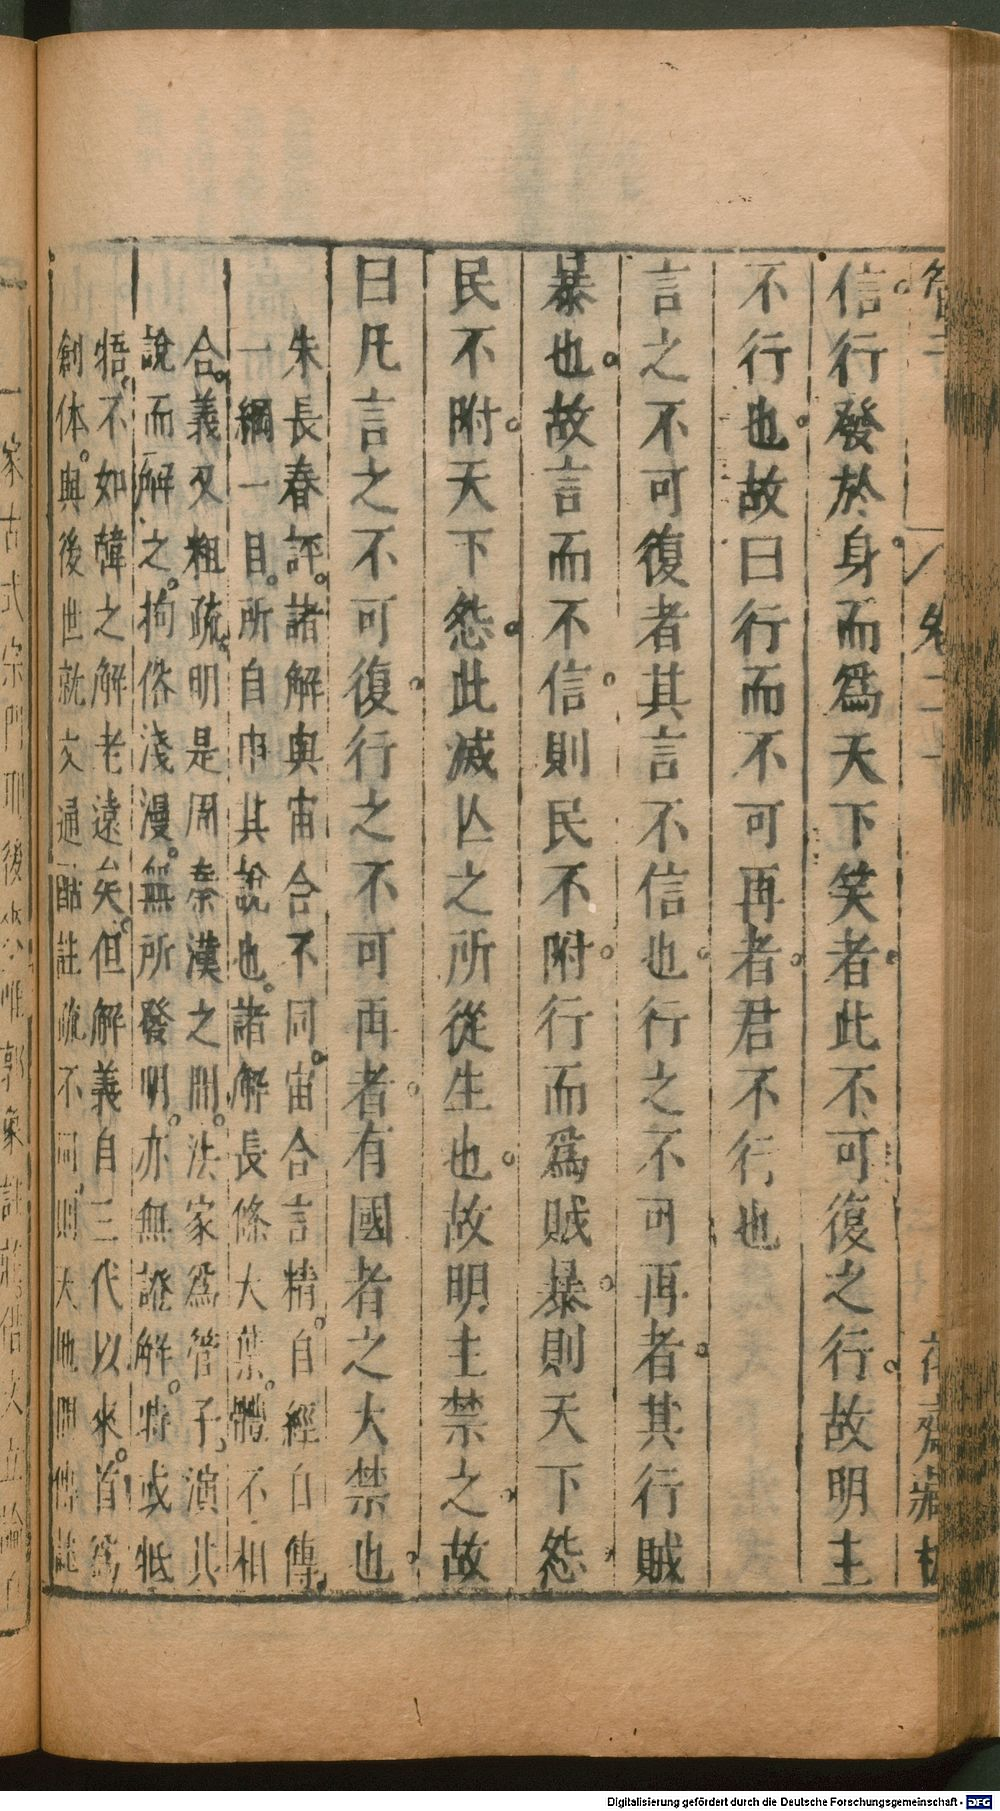 管子
卷二十
花齋藏板
信行發於身而爲天下笑者此不可復之行故明主
不行也故曰行而不可再者君不行也
言之不可復者其言不信也行之不可再者其行賊
暴也故言而不信則民不附行而爲賊暴則天下怨
民不附天下怨此滅亾之所從生也故明主禁之故
曰凡言之不可復行之不可再者有國者之大禁也
朱長春評諸解與宙合不同宙合言精自經自傳
一綱一目所自巾其說也諸解長條大葉體不相
合義又粗疏明是周秦漢之間法家爲管子演其
說而解之拘俗淺漫無所發明亦無證解特或牴
牾不如韓之解老遠矣但解義自三代以來首爲
創体與後世就文通詁註疏不同則大地間傳誌
一家古式宗門耶後來惟郭象註莊借文立論
Digitalisierung gefördert durch die Deutsche Forschungsgemeinschaft - DFG